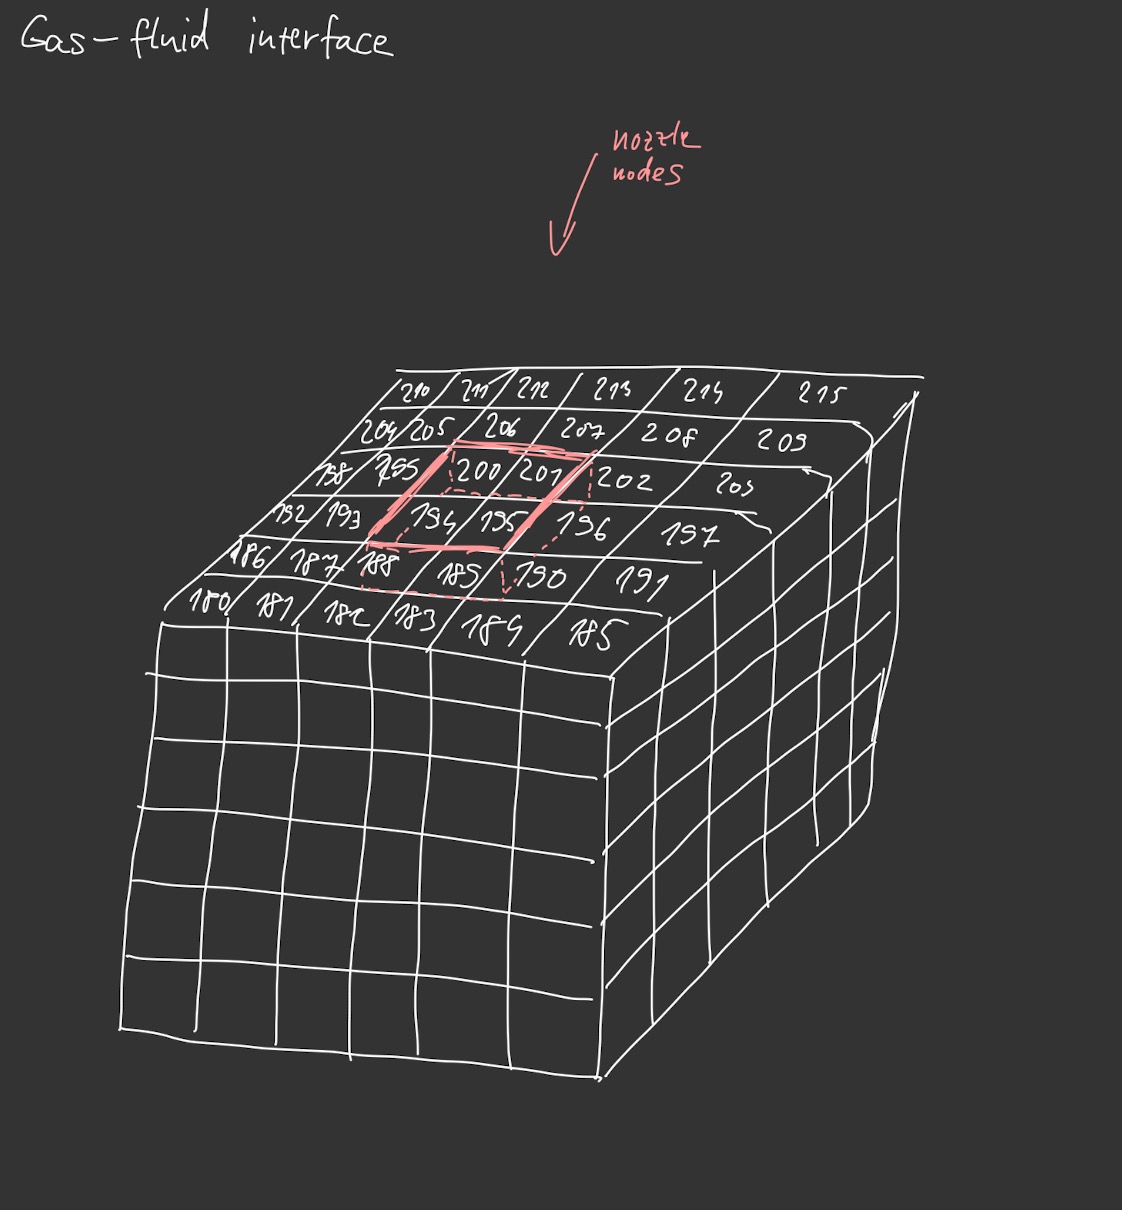 Gas-fluid interface
nozzle
nodes
210 211 212 213 214 215
204 205 206 207 208 209
198 199 200 201 202 203
192 193 194 195 196 197
186 187 188 189 190 191
180 181 182 183 184 185